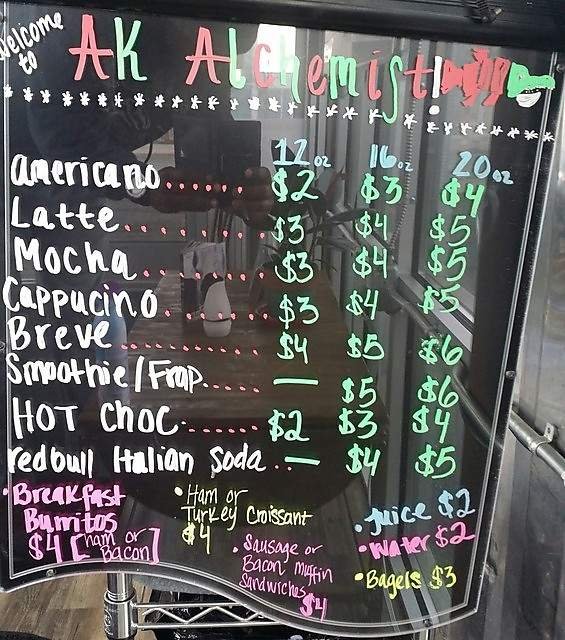 Welcome
to
AK Alchemist!
12oz 16oz 20oz
americano...... $2 $3 $4
Latte.......... $3 $4 $5
Mocha......... $3 $4 $5
Cappucino....... $3 $4 $5
Breve.......... $4 $5 $6
Smoothie/Frap..... — $5 $6
HOT Choc....... $2 $3 $4
redbull Italian Soda .. — $4 $5
• Breakfast
Burritos
$4 [ham or
Bacon]
• Ham or
Turkey Croissant
$4
• Sausage or
Bacon muffin
Sandwiches
$4
• Juice $2
• Water $2
• Bagels $3